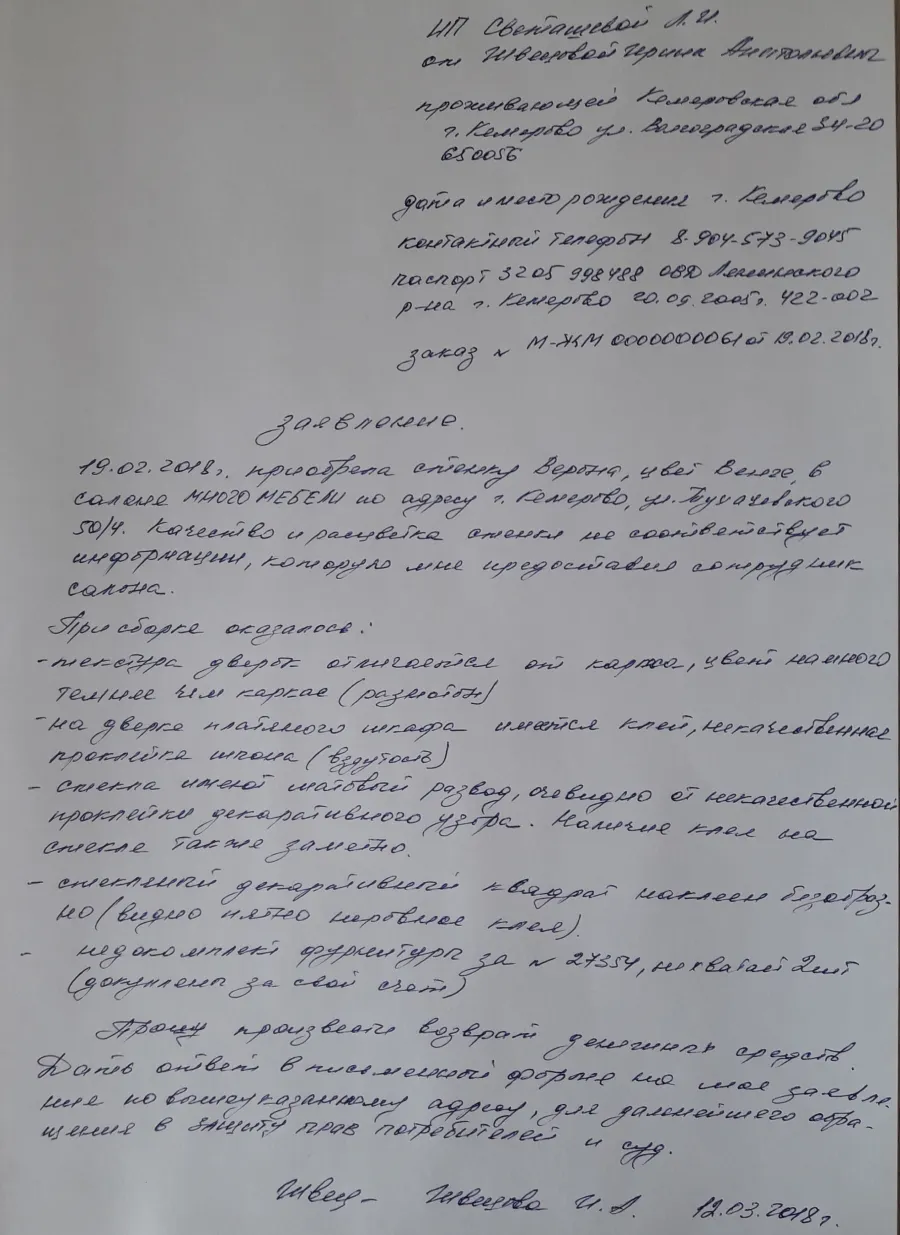 ИП Светашевой Л.И.
от Швецовой Ирины Анатольевны
проживающей Кемеровская обл
г. Кемерово ул. Волгоградская 34-20
650056
дата и место рождения г. Кемерово
контактный телефон 8-904-573-9045
паспорт 3205 998488 ОВД Ленинского
р-на г. Кемерово 20.09.2005г. 422-002
заказ N М-ЖМ 0000000061 от 19.02.2018г.
заявление.
19.02.2018г. приобрела стенку Верона, цвет Венге, в
салоне МНОГО МЕБЕЛИ по адресу г. Кемерово, ул. Тухачевского
50/4. Качество и расцветка стенки не соответствует
информации, которую мне предоставил сотрудник
салона.
При сборке оказалось:
- текстура дверок отличается от каркаса, цвет намного
темнее чем каркас (разнотон)
- на дверке платяного шкафа имеется клей, некачественная
проклейка шпона (вздутость)
- стекла имеют матовый развод, очевидно от некачественной
проклейки декаративного узора. Наличие клея на
стекле также заметно.
- стеклянный декаративный квадрат наклеен безобраз-
но (видно пятно неровное клея).
- недокомплект фурнитуры за N 27354, не хватает 2шт
(докуплены за свой счет)
Прошу произвести возврат денежных средств.
Дать ответ в письменной форме на мое заявле-
ние по вышеуказанному адресу, для дальнейшего обра-
щения в защиту прав потребителей и суд.
Швец- Швецова И.А. 12.03.2018г.